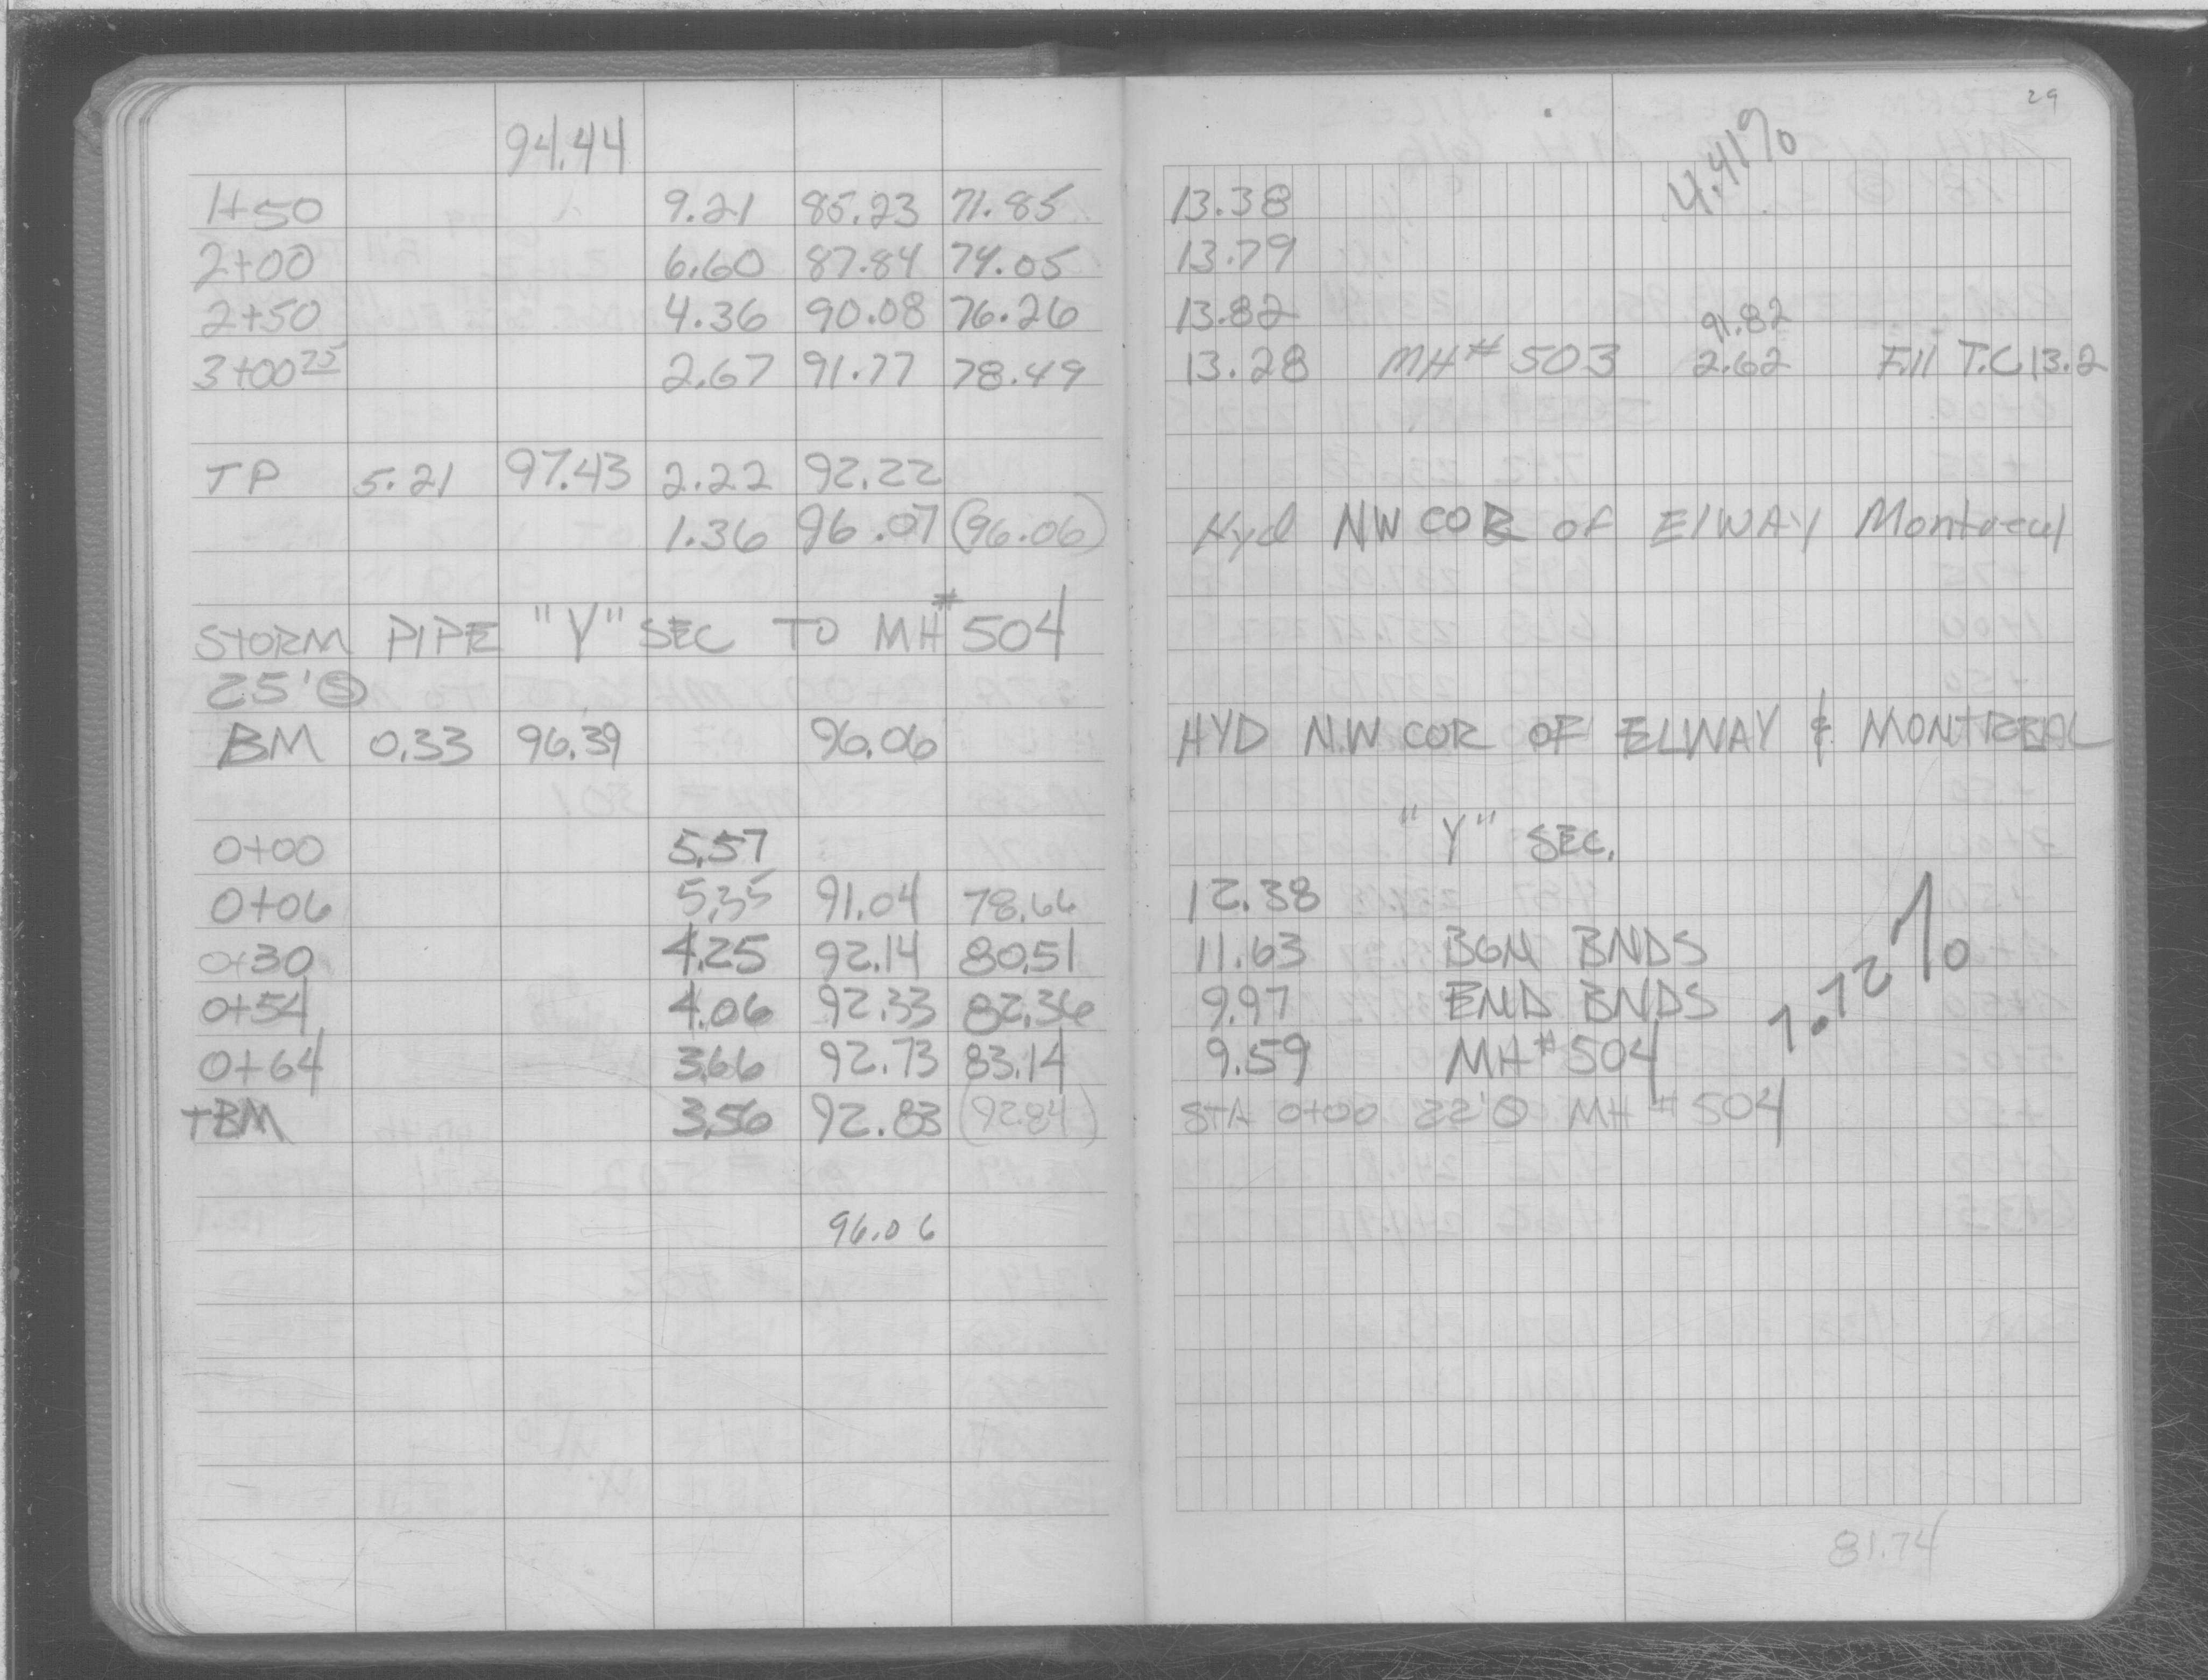 29
94.44 4.41%
1+50 9.21 85.23 71.85 13.38
2+00 6.60 87.84 74.05 13.79
2+50 4.36 90.08 76.26 13.82
91.82
3+00 25 2.67 91.77 78.49 13.28 MH# 503 2.62 Fill T.C 13.2
TP 5.21 97.43 2.22 92.22
1.36 96.07 (96.06) Hyd NW COR of ElWAY Montreal
STORM PIPE "Y" SEC TO MH# 504
25' Ⓢ
BM 0.33 96.39 96.06 HYD N.W COR OF ELWAY & MONTREAL
0+00 5.57 "Y" SEC.
0+06 5.35 91.04 78.66 12.38
0+30 4.25 92.14 80.51 11.63 BGN BNDS
0+54 4.06 92.33 82.36 9.97 END BNDS
0+64 3.66 92.73 83.14 9.59 MH# 504
TBM 3.56 92.83 (92.84) STA 0+00 22' MH # 504
96.06
81.74